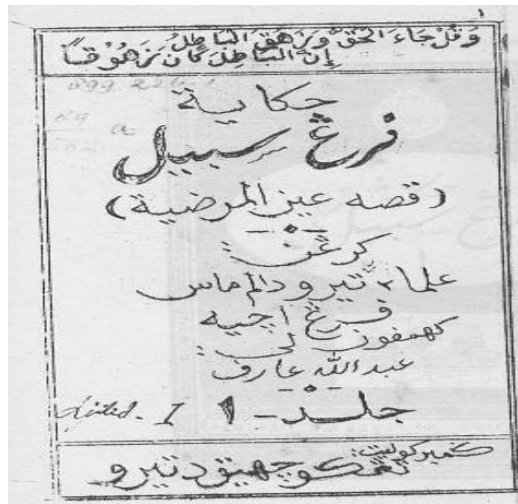 ١
وَقُلْ جَاءَ الحَقُّ وَزَهَقَ البَاطِلُ
إِنَّ البَاطِلَ كَانَ زَهُوْقًا
حكاية
فرڠ سبيل
(قصه عين المرضية)
كرڠن:
علماء تيرو دالم ماس
فرڠ اچيه
كهمفون لي:
عبدالله عارف
جلد - ١ Jilid - I
كمبر كوليت: تڠكو چهيق دتيرو